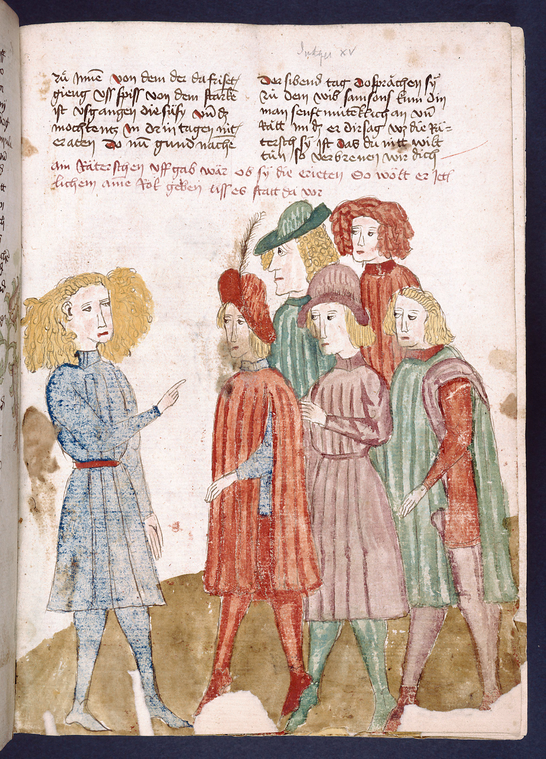 Judges XV
zů Jnne von dem der da frisset
gieng vss spiss von dem starke
ist vsgangen die süssÿ vnd
mochtentz in drin tagen nit
er aten Do nū gund nache
Der sibend tag Do sprächen sÿ
zů dem wib samsons din
man senft an vn̄
Rätt im dz er dir sag wz die Rä=
tersch sÿ ist das du nitt wilt
tůn so verbrenen wir dich
Ain Räterschen vff gab wär ob sÿ die erieten So wölt er Jett
lichem aine Rok geben Alss es statt da vor